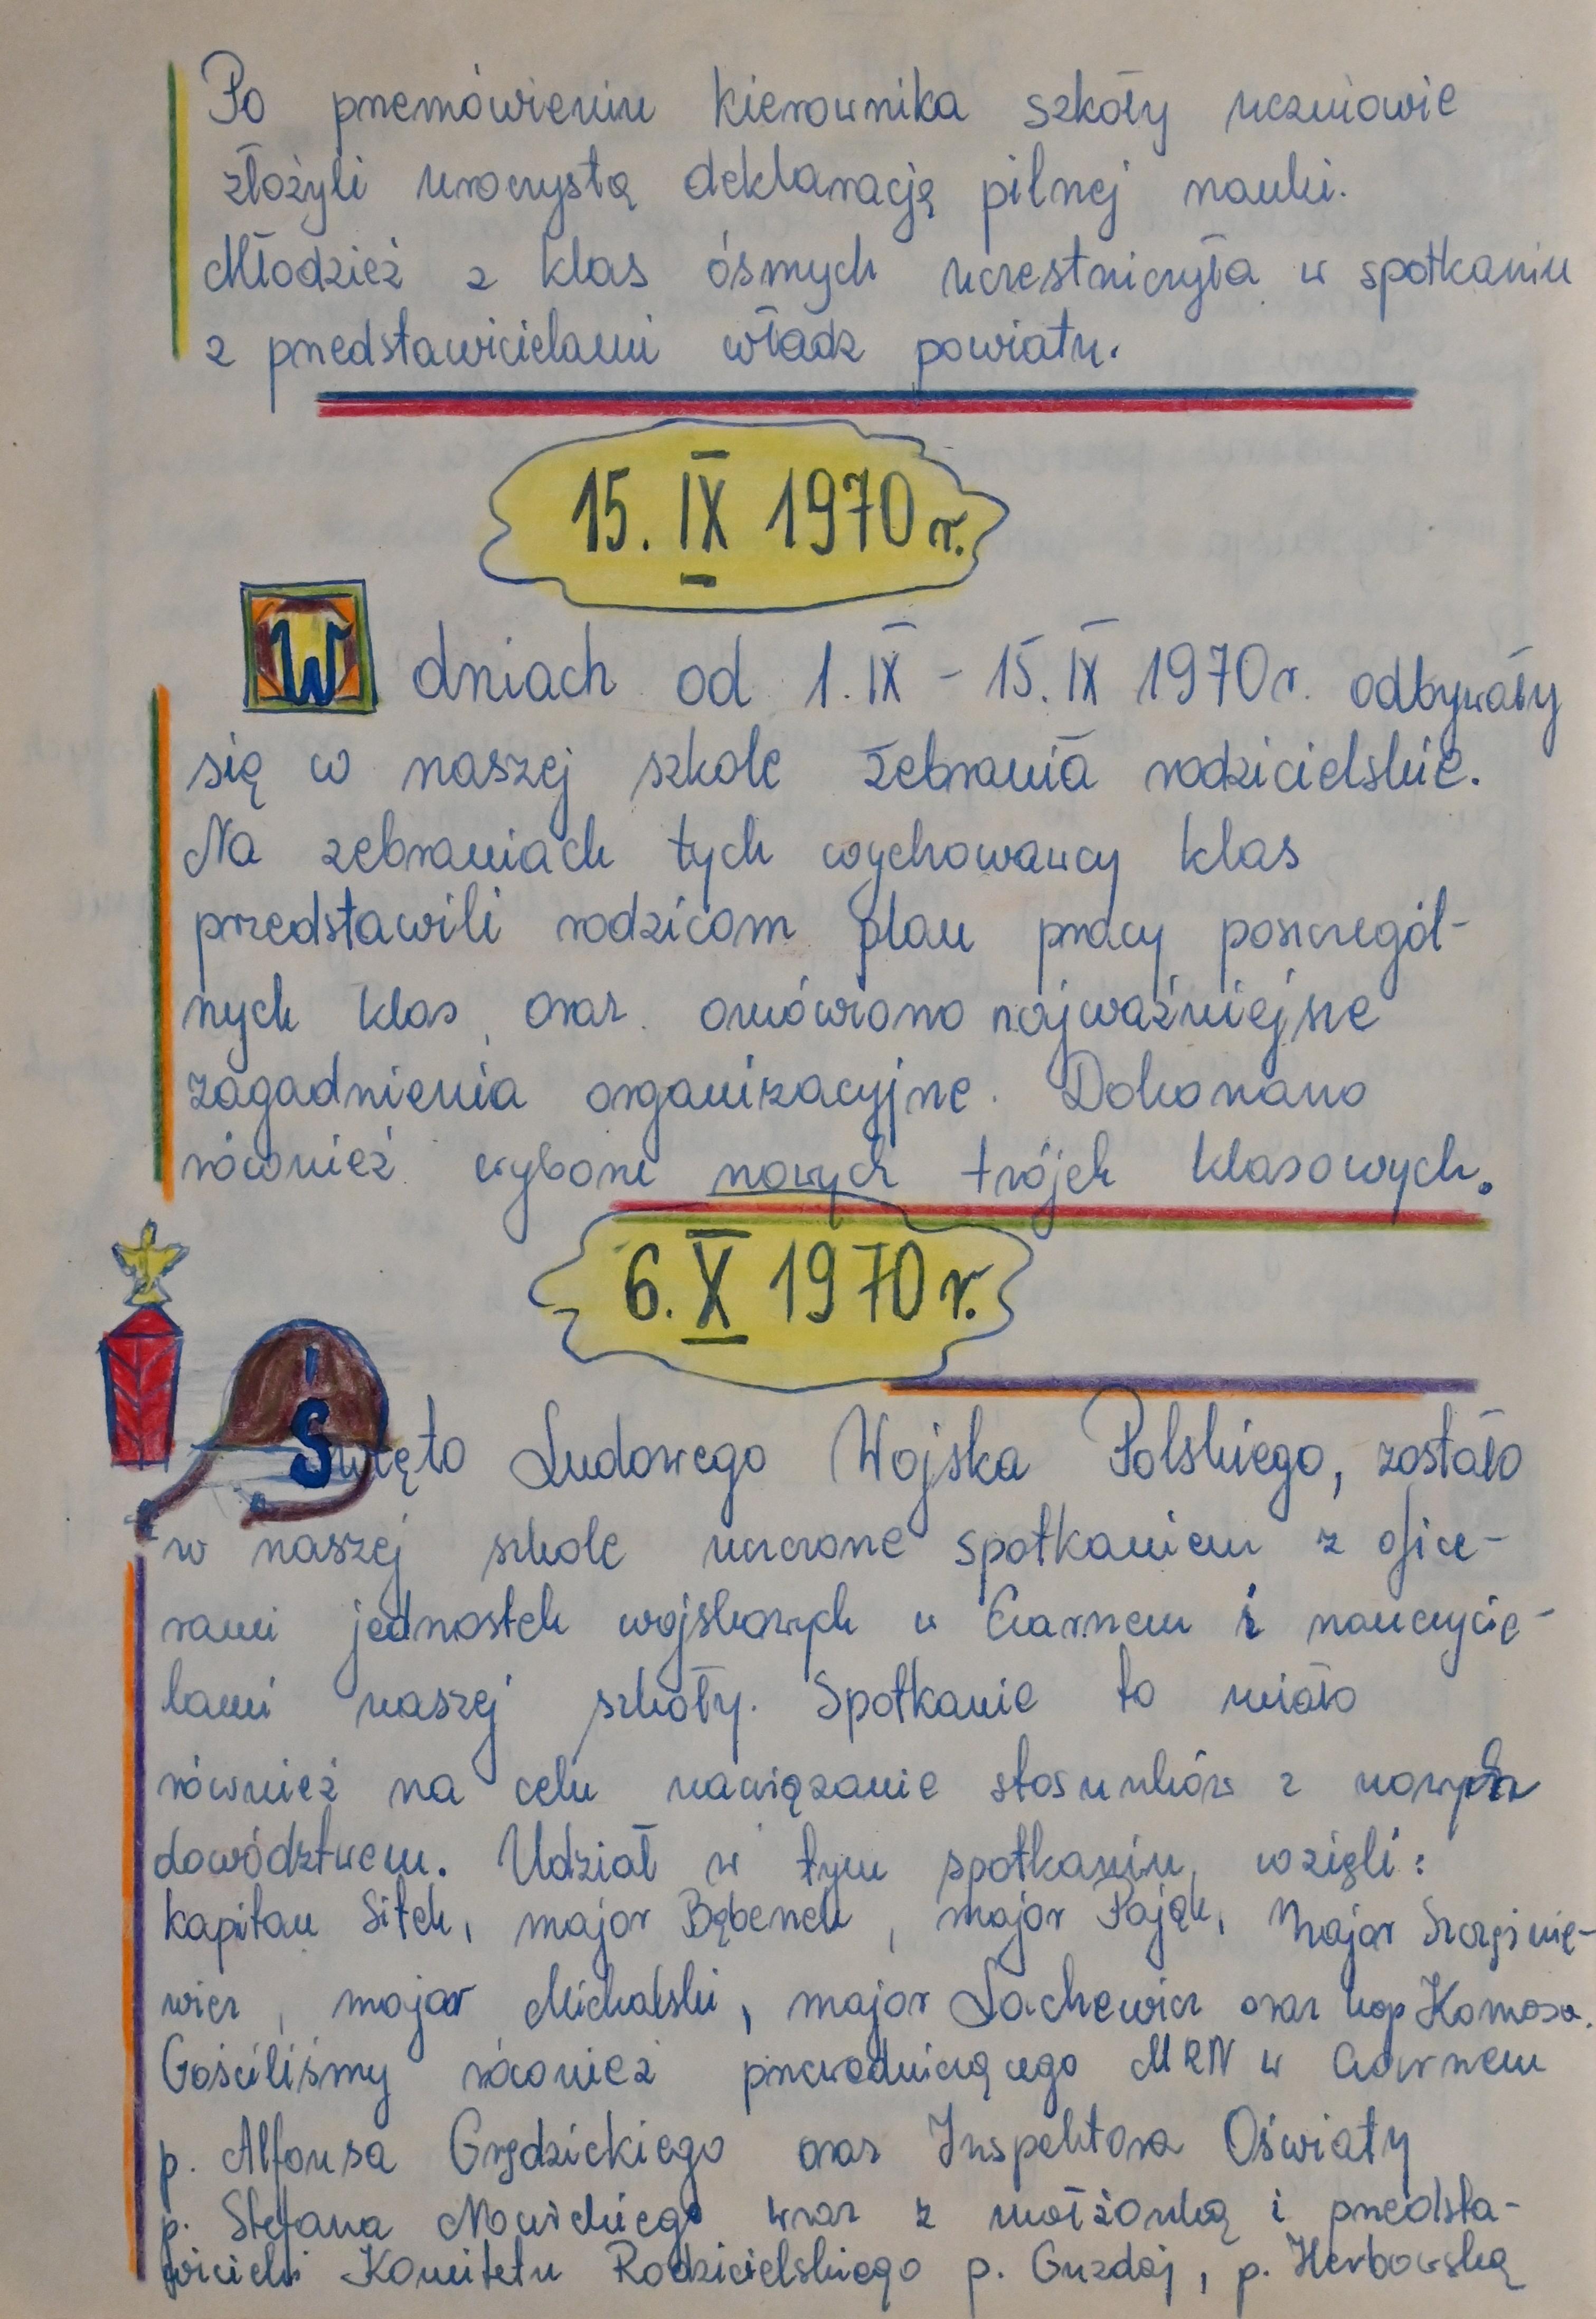 Po przemówieniu kierownika szkoły uczniowie
złożyli uroczystą deklarację pilnej nauki.
Młodzież z klas ósmych uczestniczyła w spotkaniu
z przedstawicielami władz powiatu.
15. IX 1970 r.
W dniach od 1. IX - 15. IX 1970 r. odbywały
się w naszej szkole zebrania rodzicielskie.
Na zebraniach tych wychowawcy klas
przedstawili rodzicom plan pracy poszczegól-
nych klas, oraz omówiono najważniejsze
zagadnienia organizacyjne. Dokonano
również wyboru nowych trójek klasowych.
6. X 1970 r.
Święto Ludowego Wojska Polskiego, zostało
w naszej szkole uczczone spotkaniem z ofice-
rami jednostek wojskowych w Czarnem i nauczycie-
lami naszej szkoły. Spotkanie to miało
również na celu nawiązanie stosunków z nowym
dowództwem. Udział w tym spotkaniu wzięli:
kapitan Sitek, major Bębenek, major Pająk, major
major Michalski, major Lachewicz oraz kap Komosa.
Gościliśmy również przewodniczącego MRN w Czarnem
p. Alfonsa Grędzickiego oraz Inspektora Oświaty
p. Stefana Nowickiego wraz z małżonką i przedsta-
wicieli Komitetu Rodzicielskiego p. Guzdaj, p. Herbowską